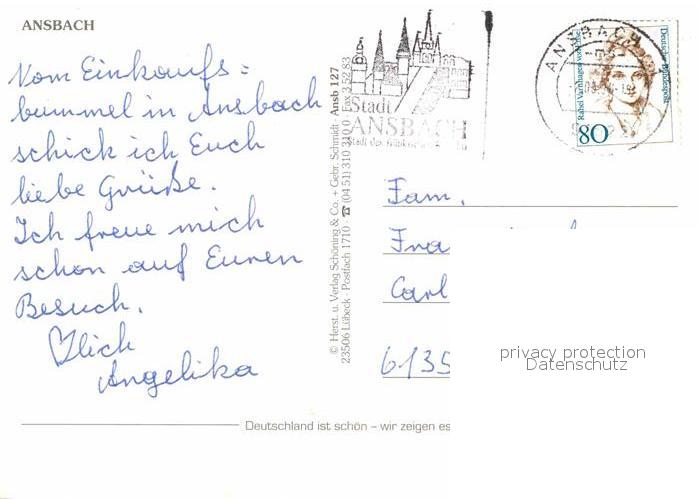 ANSBACH
Vom Einkaufs=
bummel in Ansbach
schick ich Euch
liebe Grüße.
Ich freue mich
schon auf Euren
Besuch.
♡lich
Angelika
Deutschland ist schön – wir zeigen es
© Herst. u. Verlag Schöning & Co. + Gebr. Schmidt Ansb 127
23506 Lübeck · Postfach 1710 · ☎ (04 51) 310 310 0 · Fax 3 52 83
Stadt
ANSBACH
Stadt der
ANSBACH
Deutsche Bundespost
Rahel Varnhagen von Ense
80
Fam.
Fra
Carl
6135
privacy protection
Datenschutz